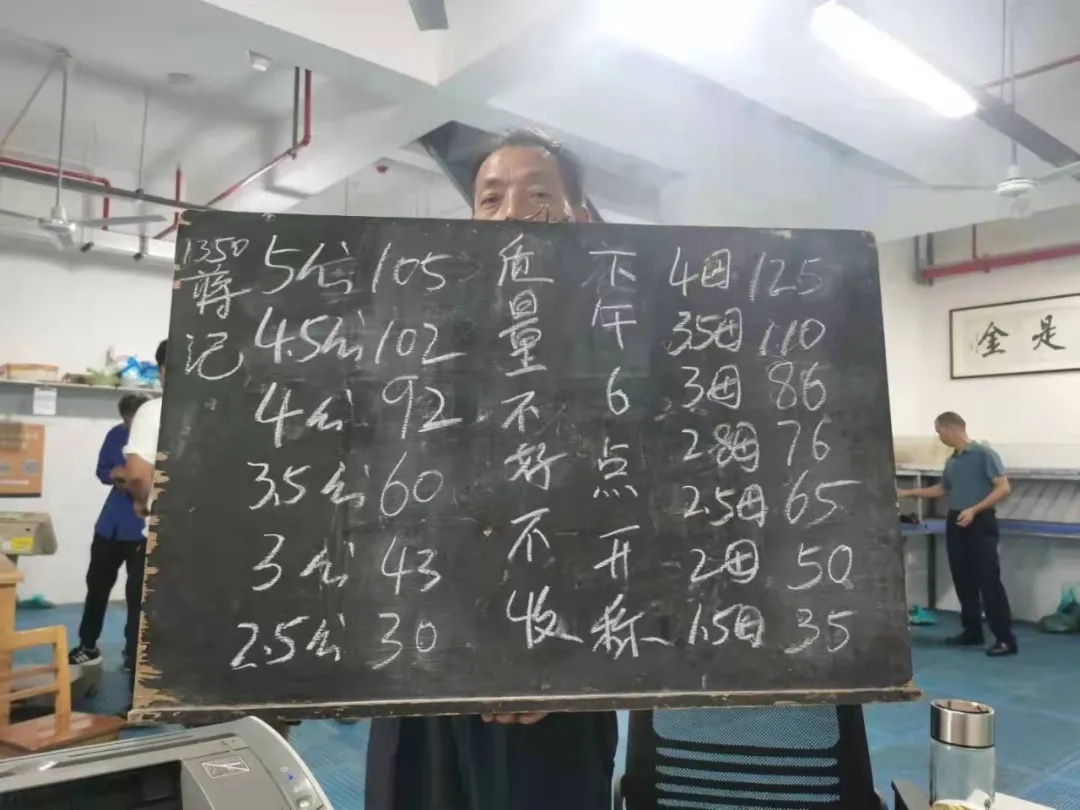 1350
蒋记
5公 105
4.5公 102
4公 92
3.5公 60
3公 43
2.5公 30
质量不好不收
下午6点开称
4母 125
3.5母 110
3母 86
2.8母 76
2.5母 65
2母 50
1.5母 35
是金